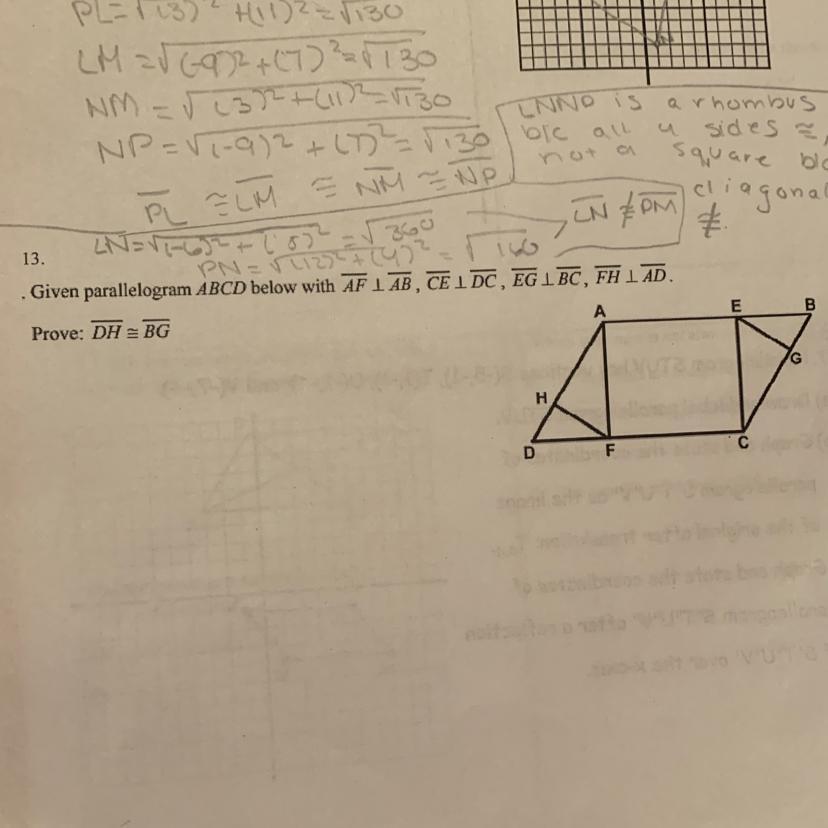 PL = √(3)² + (11)² = √130
LM = √(-9)² + (7)² = √130
NM = √(3)² + (11)² = √130
NP = √(-9)² + (7)² = √130
PL ≅ LM ≅ NM ≅ NP
LNNP is a rhombus
b/c all 4 sides ≅,
not a square b/c
diagonal
≇.
LN ≇ PM
LN = √(-6)² + (18)² = √360
PN = √(12)² + (4)² = √160
13.
. Given parallelogram ABCD below with AF ⊥ AB, CE ⊥ DC, EG ⊥ BC, FH ⊥ AD.
Prove: DH ≅ BG
A E B
G
H
D F C